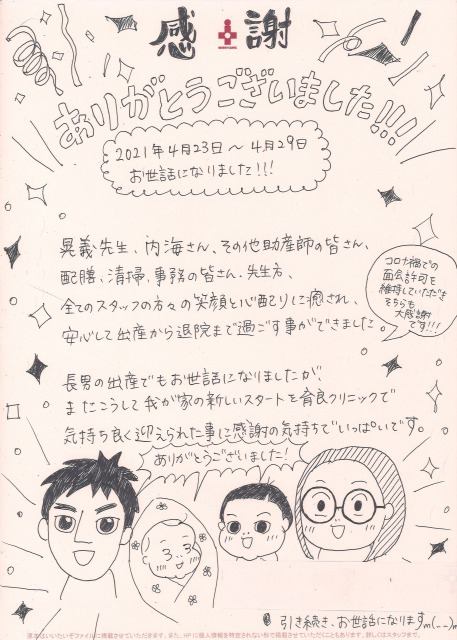 感謝
ありがとうございました!!!
2021年4月23日～4月29日
お世話になりました!!!
晃義先生、内海さん、その他助産師の皆さん、
配膳、清掃、事務の皆さん、先生方、
全てのスタッフの方々の笑顔と心配りに癒され、
安心して出産から退院まで過ごす事ができました。
コロナ禍での
面会許可を
維持していただき
そちらも
大感謝
です!!!
長男の出産でもお世話になりましたが、
またこうして我が家の新しいスタートを育良クリニックで
気持ち良く迎えられた事に感謝の気持ちでいっぱいです。
ありがとうございました!
引き続き、お世話になりますm(__)m